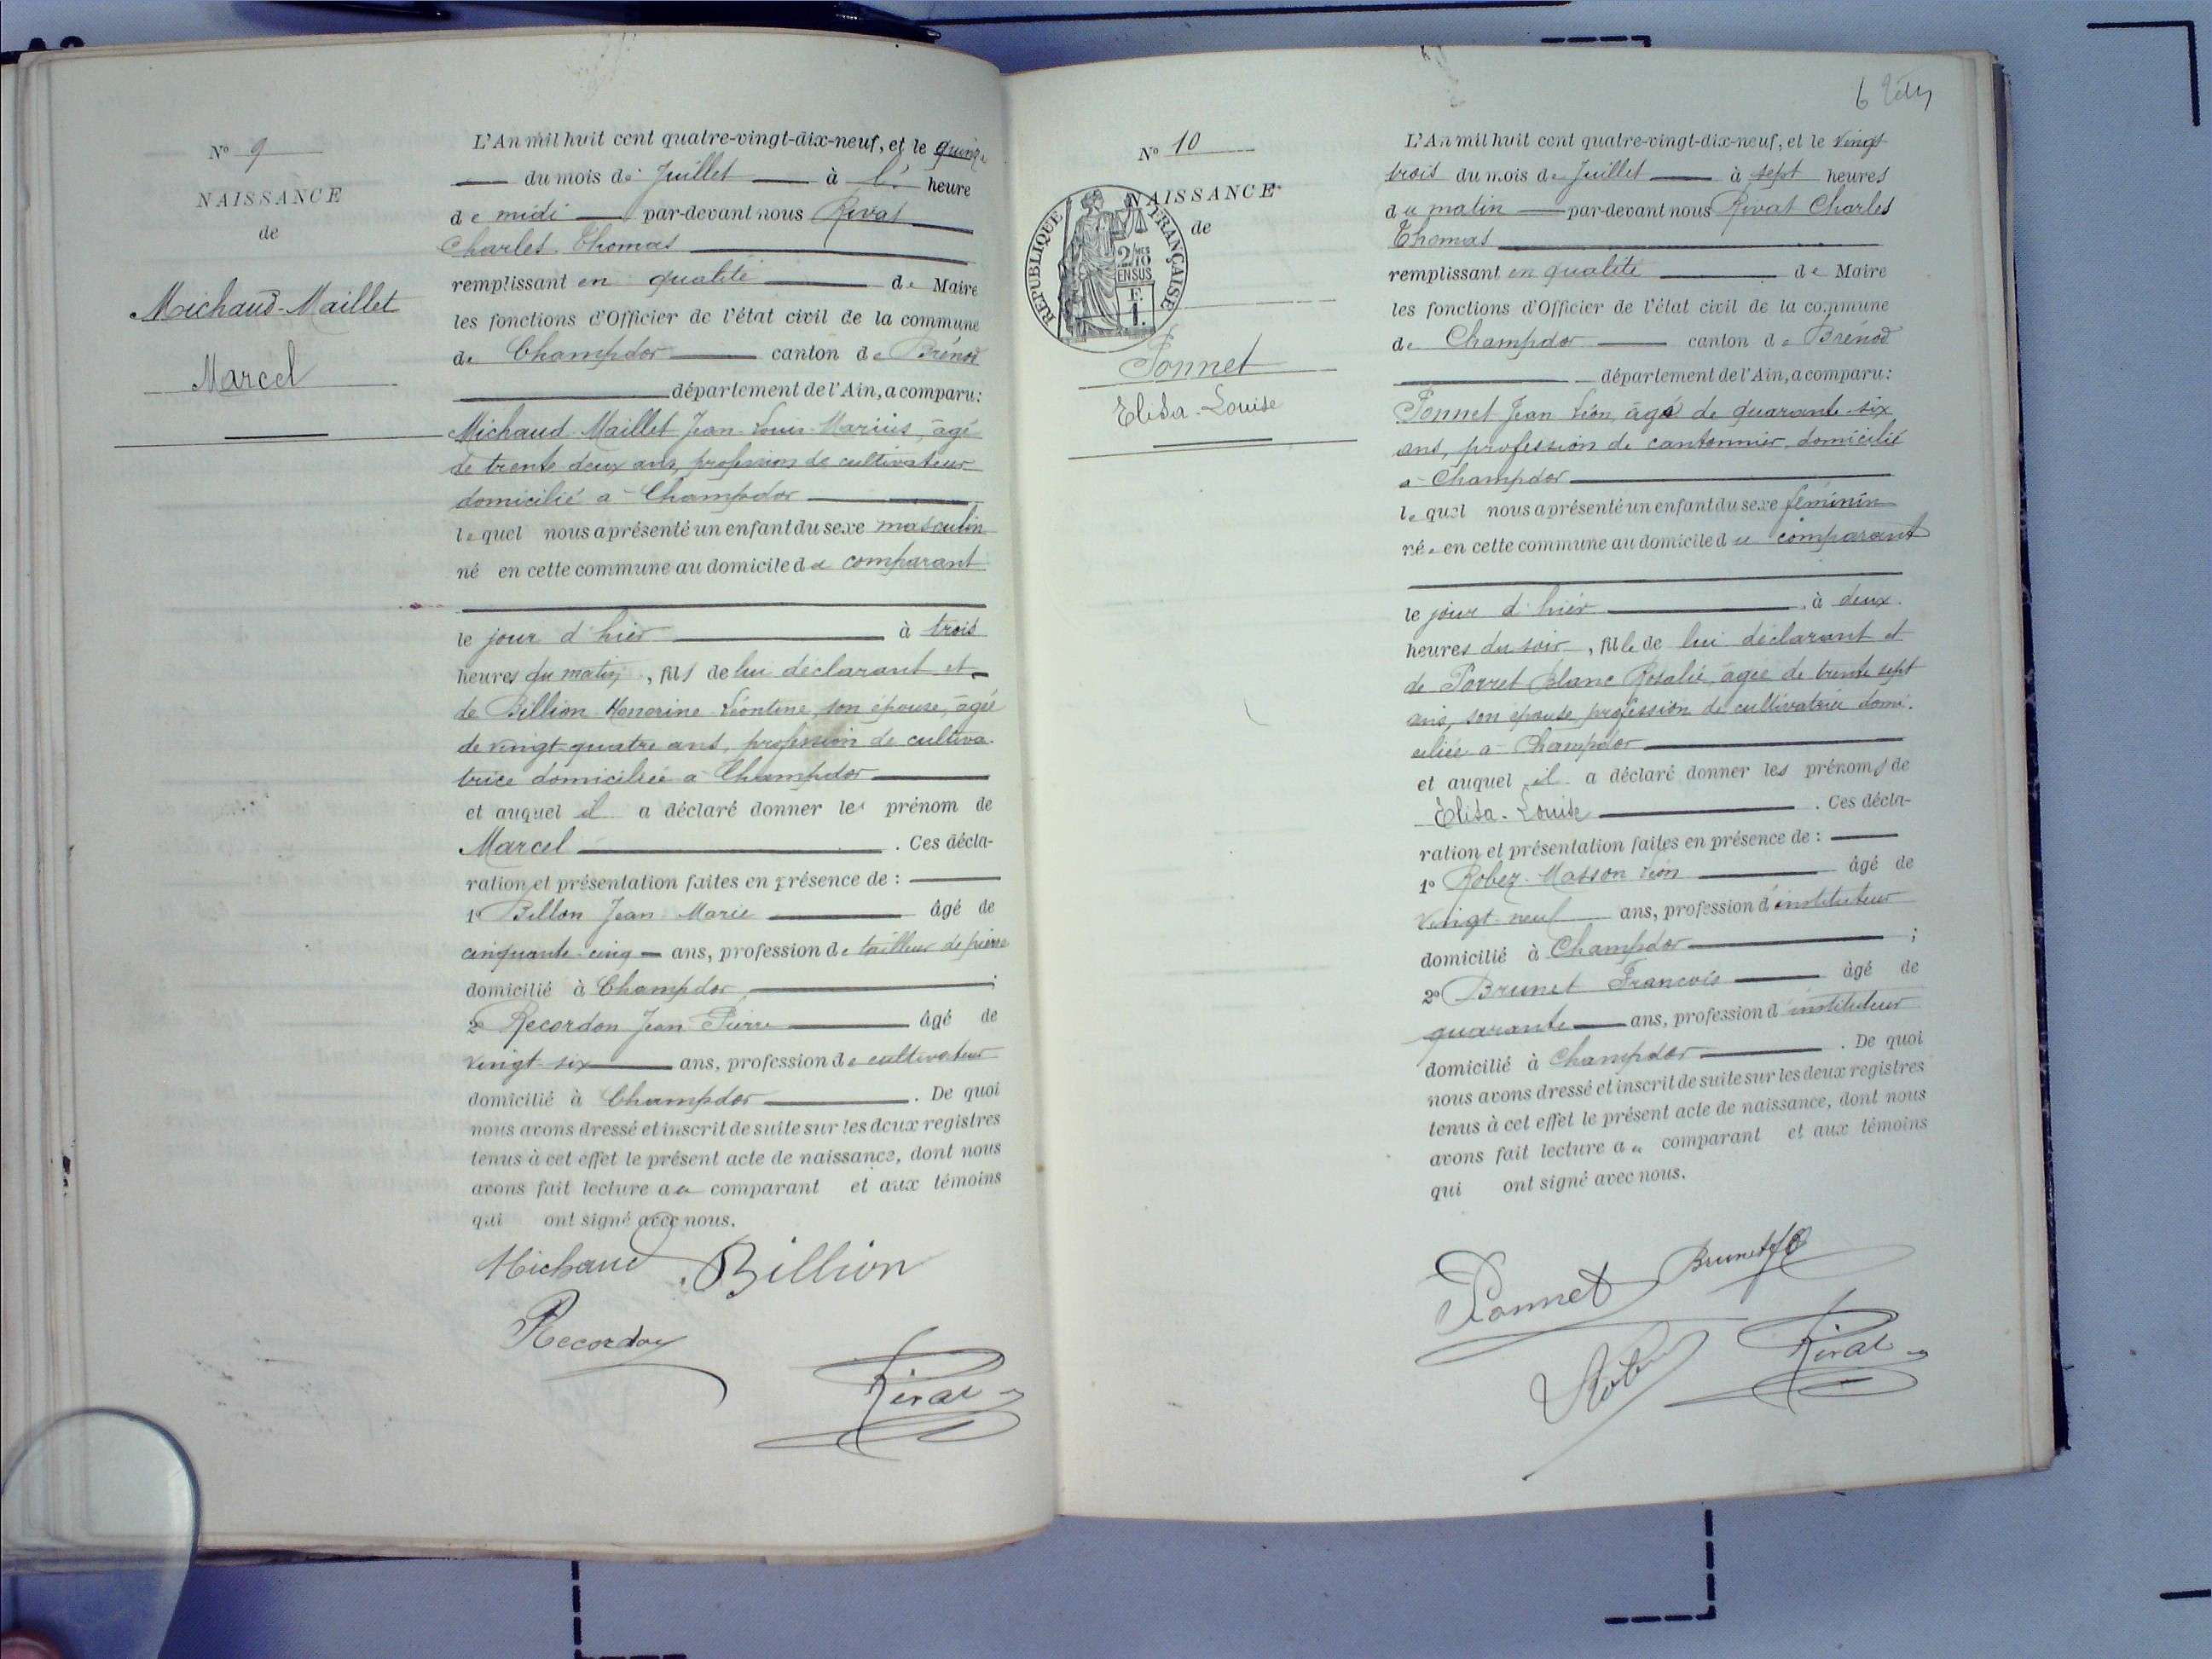 Nº 9
NAISSANCE
de
Michaud-Maillet
Marcel
L'An mil huit cent quatre-vingt-dix-neuf, et le quinze
du mois de Juillet à l' heure
de midi par-devant nous Rivat
Charles Thomas
remplissant en qualité de Maire
les fonctions d'Officier de l'état civil de la commune
de Champdor canton de Brénod
département de l'Ain, a comparu:
Michaud-Maillet Jean-Louis-Marius, âgé
de trente-deux ans, profession de cultivateur
domicilié à Champdor
lequel nous a présenté un enfant du sexe masculin
né en cette commune au domicile du comparant
le jour d'hier à trois
heures du matin, fils de lui déclarant et
de Billion Honorine Léontine, son épouse, âgée
de vingt-quatre ans, profession de cultiva-
trice domiciliée à Champdor
et auquel il a déclaré donner le prénom de
Marcel . Ces décla-
ration et présentation faites en présence de :
1º Billon Jean Marie âgé de
cinquante-cinq ans, profession de tailleur de pierre
domicilié à Champdor ;
2º Recordon Jean Pierre âgé de
vingt-six ans, profession de cultivateur
domicilié à Champdor . De quoi
nous avons dressé et inscrit de suite sur les deux registres
tenus à cet effet le présent acte de naissance, dont nous
avons fait lecture au comparant et aux témoins
qui ont signé avec nous.
Michaud Billion
Recordon
Rivat
6
Nº 10
NAISSANCE
de
REPUBLIQUE FRANÇAISE
2/10
EN SUS
Ponnet
Elisa-Louise
L'An mil huit cent quatre-vingt-dix-neuf, et le vingt
trois du mois de Juillet à sept heures
du matin par-devant nous Rivat Charles
Thomas
remplissant en qualité de Maire
les fonctions d'Officier de l'état civil de la commune
de Champdor canton de Brénod
département de l'Ain, a comparu:
Ponnet Jean Léon, âgé de quarante-six
ans, profession de cantonnier, domicilié
à Champdor
lequel nous a présenté un enfant du sexe féminin
née en cette commune au domicile du comparant
le jour d'hier à deux
heures du soir, fille de lui déclarant et
de Porret Blanc Rosalie, âgée de trente sept
ans, son épouse, profession de cultivatrice domi-
ciliée à Champdor
et auquel il a déclaré donner les prénoms de
Elisa-Louise . Ces décla-
ration et présentation faites en présence de :
1º Robez-Masson Léon âgé de
vingt-neuf ans, profession d'instituteur
domicilié à Champdor ;
2º Brunet François âgé de
quarante ans, profession d'instituteur
domicilié à Champdor . De quoi
nous avons dressé et inscrit de suite sur les deux registres
tenus à cet effet le présent acte de naissance, dont nous
avons fait lecture au comparant et aux témoins
qui ont signé avec nous.
Ponnet Brunet
Robez Rivat